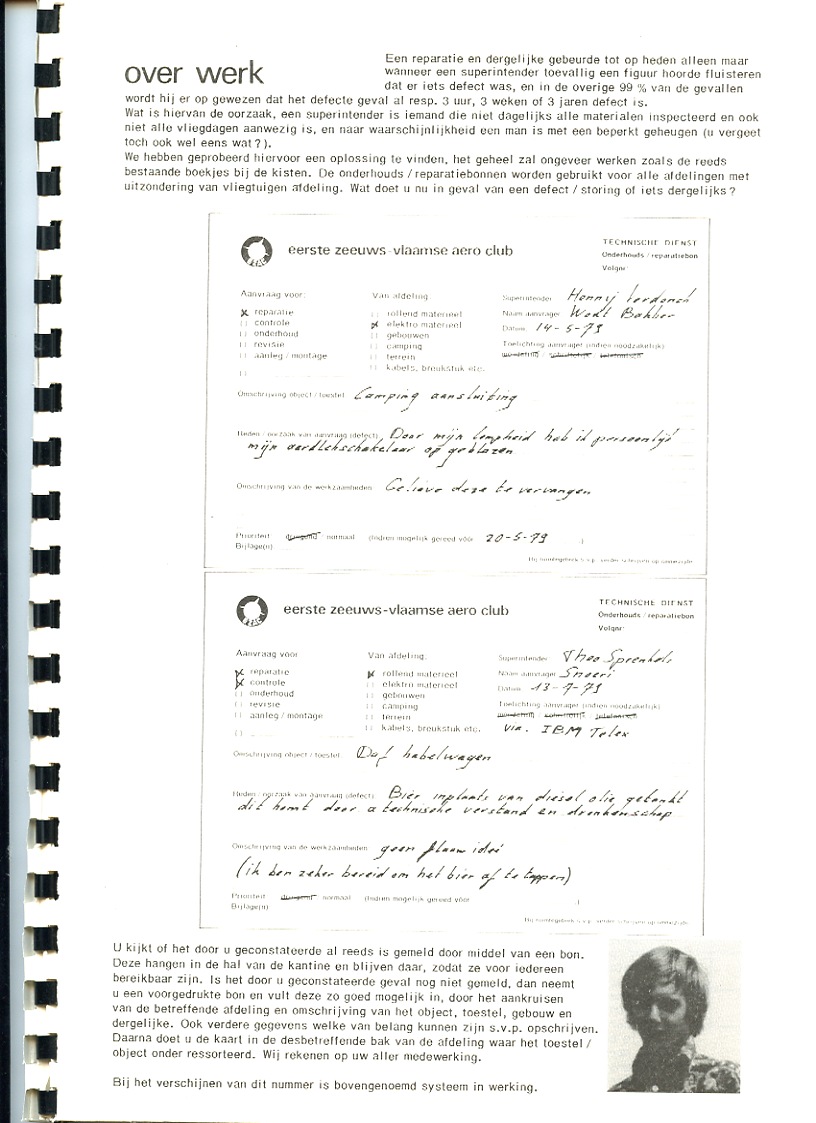 over werk
Een reparatie en dergelijke gebeurde tot op heden alleen maar
wanneer een superintender toevallig een figuur hoorde fluisteren
dat er iets defect was, en in de overige 99 % van de gevallen
wordt hij er op gewezen dat het defecte geval al resp. 3 uur, 3 weken of 3 jaren defect is.
Wat is hiervan de oorzaak, een superintender is iemand die niet dagelijks alle materialen inspecteerd en ook
niet alle vliegdagen aanwezig is, en naar waarschijnlijkheid een man is met een beperkt geheugen (u vergeet
toch ook wel eens wat?).
We hebben geprobeerd hiervoor een oplossing te vinden, het geheel zal ongeveer werken zoals de reeds
bestaande boekjes bij de kisten. De onderhouds / reparatiebonnen worden gebruikt voor alle afdelingen met
uitzondering van vliegtuigen afdeling. Wat doet u nu in geval van een defect / storing of iets dergelijks?
eerste zeeuws-vlaamse aero club
TECHNISCHE DIENST
Onderhouds / reparatiebon
Volgnr:
Aanvraag voor:
x reparatie
( ) controle
( ) onderhoud
( ) revisie
( ) aanleg / montage
( )
Van afdeling:
( ) rollend materieel
x elektro materieel
( ) gebouwen
( ) camping
( ) terrein
( ) kabels, breukstuk etc.
Superintender Henny
Naam aanvrager Wodt Bakker
Datum 14-5-79
Toelichting aanvrager (indien noodzakelijk)
mondeling / schriftelijk / telefonisch
Omschrijving object / toestel Camping aansluiting
Reden / oorzaak van aanvraag (defect) Door mijn lompheid heb ik persoonlijk
mijn aardlekschakelaar op geblazen
Omschrijving van de werkzaamheden Gelieve deze te vervangen
Prioriteit dringend / normaal (Indien mogelijk gereed vóór 20-5-79 )
Bijlage(n)
Bij ruimtegebrek s.v.p. verder schrijven op ommezijde
eerste zeeuws-vlaamse aero club
TECHNISCHE DIENST
Onderhouds / reparatiebon
Volgnr:
Aanvraag voor
x reparatie
x controle
( ) onderhoud
( ) revisie
( ) aanleg / montage
( )
Van afdeling:
x rollend materieel
( ) elektro materieel
( ) gebouwen
( ) camping
( ) terrein
( ) kabels, breukstuk etc.
Superintender Theo
Naam aanvrager Snoeri
Datum 13-7-79
Toelichting aanvrager (indien noodzakelijk)
mondeling schriftelijk telefonisch
via. IBM Telex
Omschrijving object / toestel Daf kabelwagen
Reden / oorzaak van aanvraag (defect) Bier inplaats van diesel olie getankt
dit komt door a technische verstand en dronkenschap
Omschrijving van de werkzaamheden geen flauw idee
(ik ben zeker bereid om het bier af te tappen)
Prioriteit dringend normaal (Indien mogelijk gereed vóór )
Bijlage(n)
Bij ruimtegebrek s.v.p. verder schrijven op ommezijde
U kijkt of het door u geconstateerde al reeds is gemeld door middel van een bon.
Deze hangen in de hal van de kantine en blijven daar, zodat ze voor iedereen
bereikbaar zijn. Is het door u geconstateerde geval nog niet gemeld, dan neemt
u een voorgedrukte bon en vult deze zo goed mogelijk in, door het aankruisen
van de betreffende afdeling en omschrijving van het object, toestel, gebouw en
dergelijke. Ook verdere gegevens welke van belang kunnen zijn s.v.p. opschrijven.
Daarna doet u de kaart in de desbetreffende bak van de afdeling waar het toestel /
object onder ressorteerd. Wij rekenen op uw aller medewerking.
Bij het verschijnen van dit nummer is bovengenoemd systeem in werking.